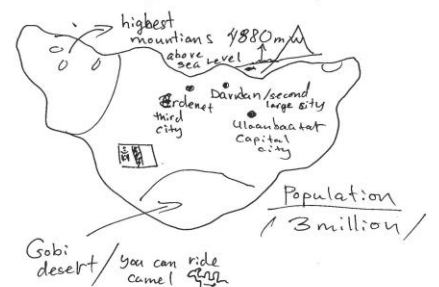 highest
mountians 4880m
above
sea level
Erdenet
third
city
Dardan/second
large city
Ulaanbaatat
Capital
city
Population
/ 3 million /
Gobi
desert / you can ride
camel